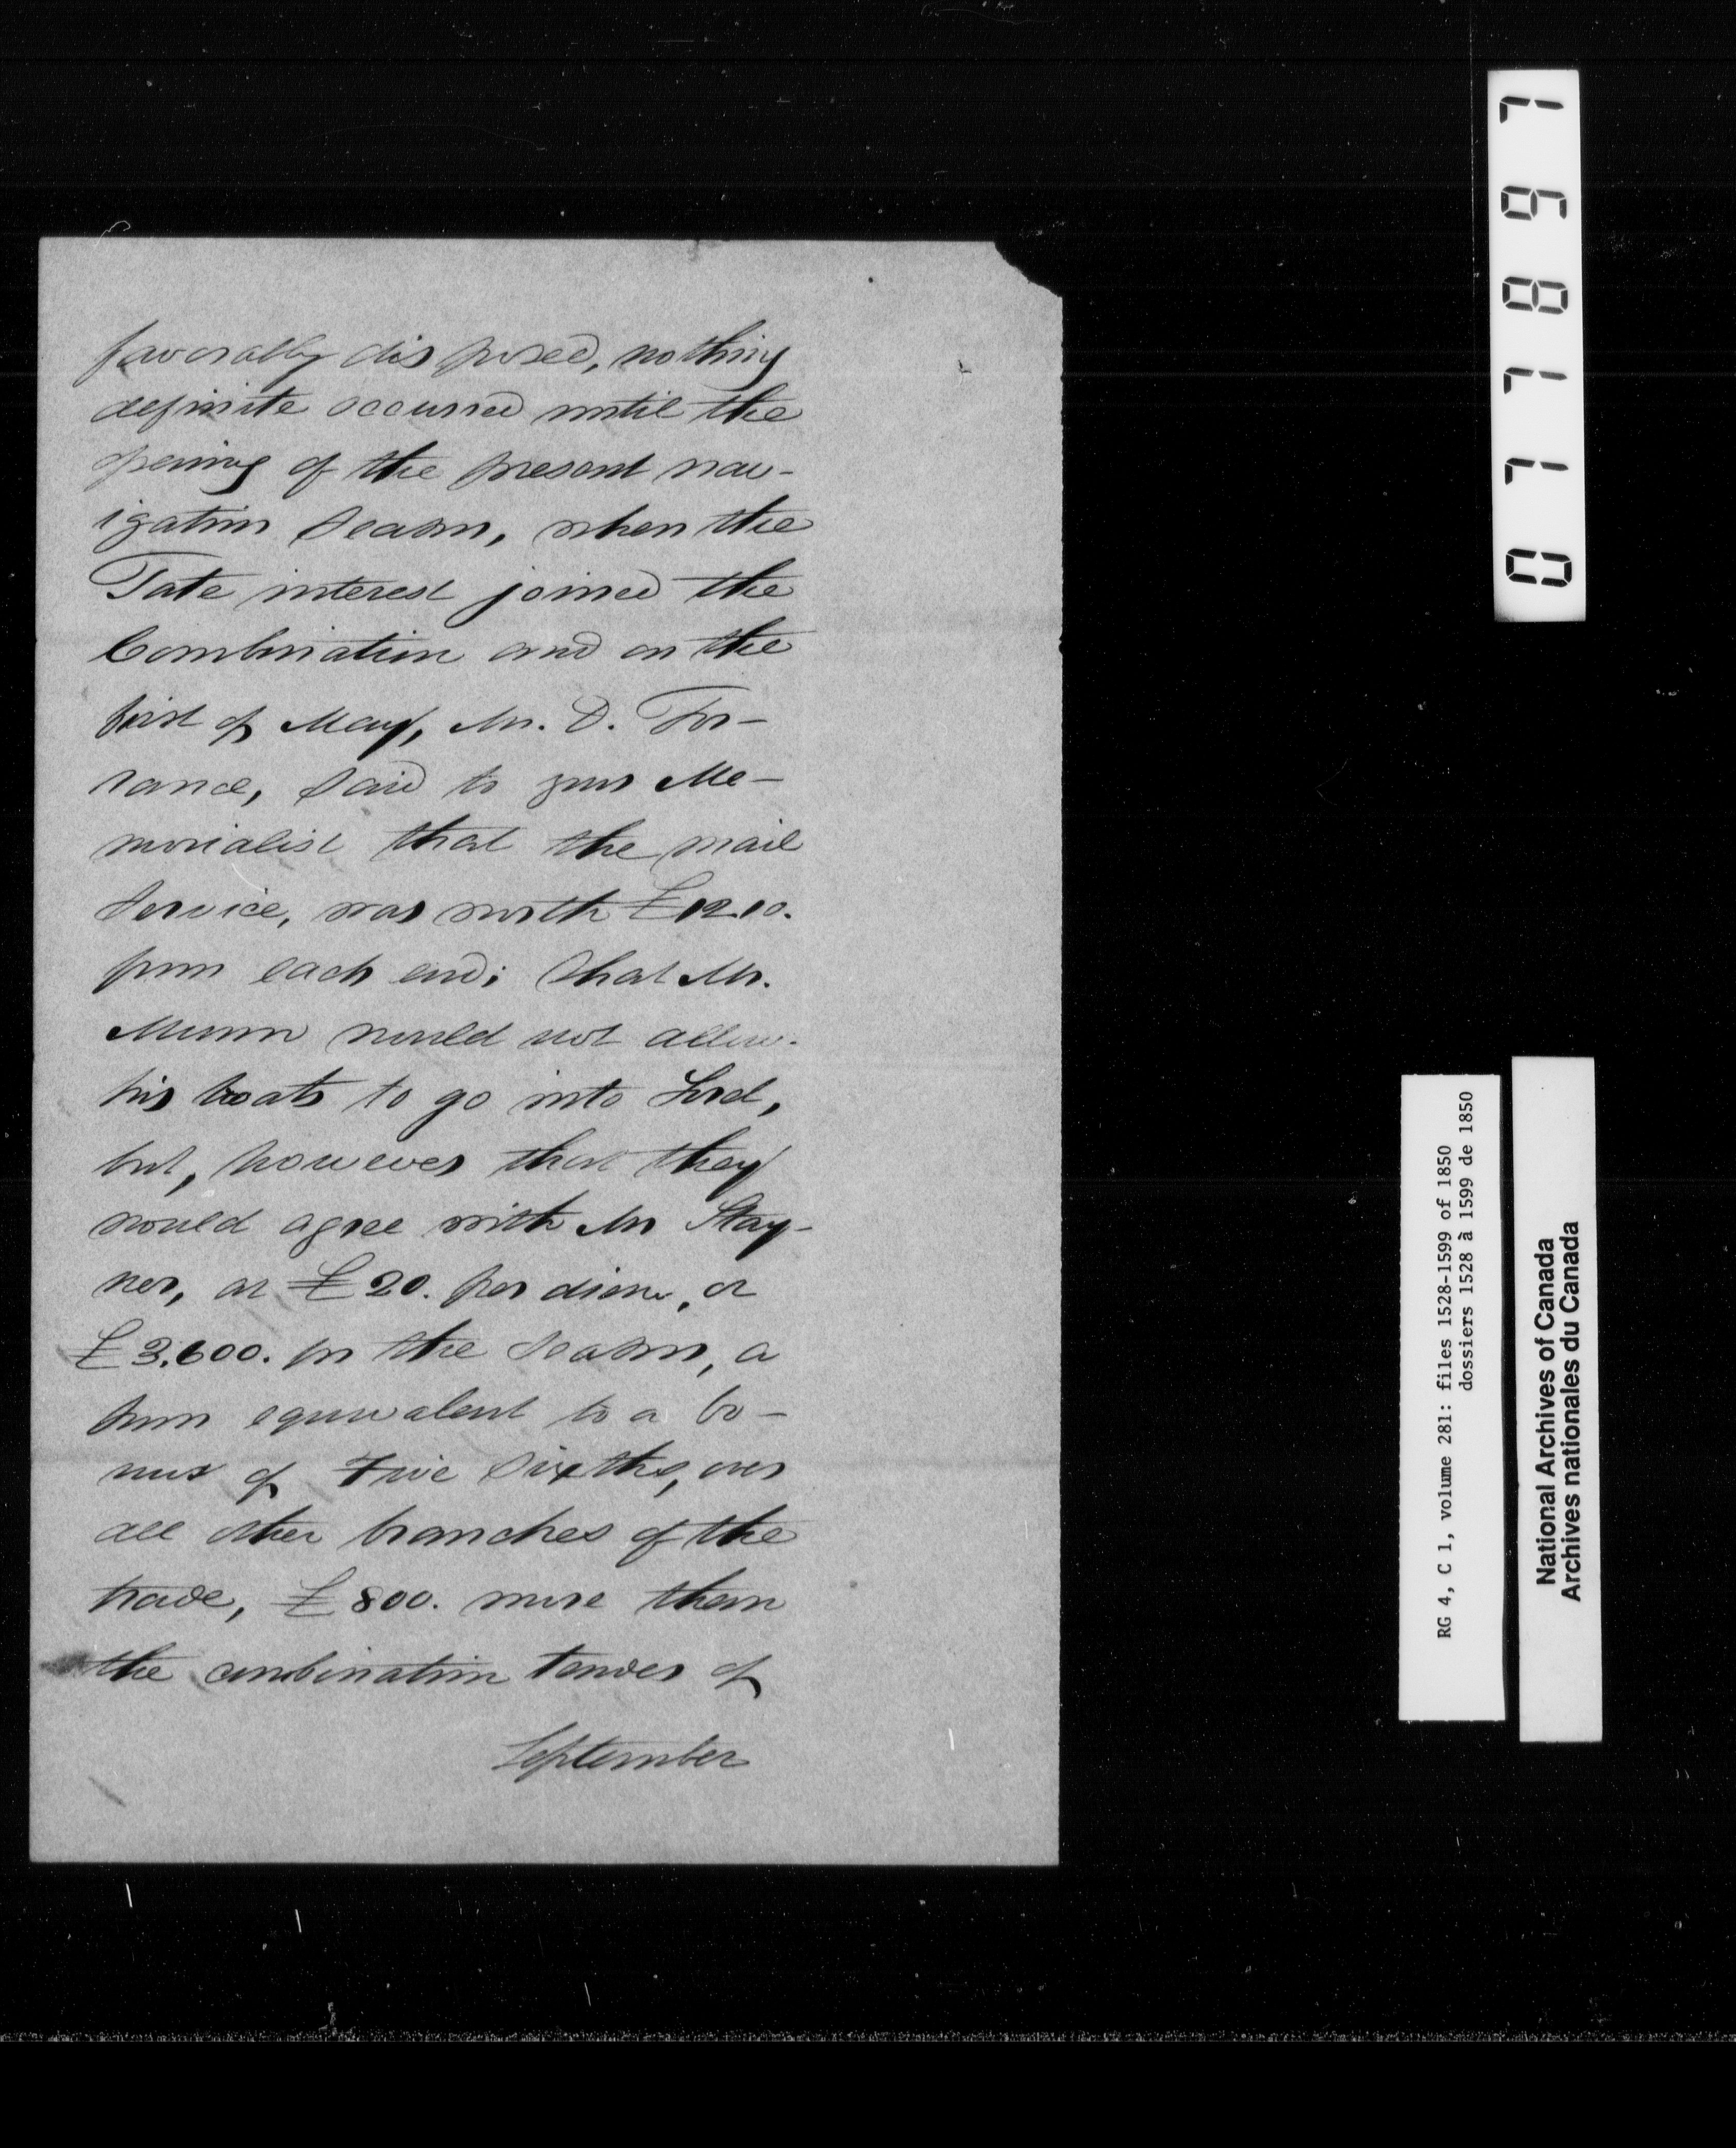 favorably disposed, nothing
definite occurred until the
opening of the present nav-
igation season, when the
Tate interest joined the
Combination and on the
first of May, Mr. D. Tor-
rance, said to your Me-
morialist that the mail
service, was worth £12.10.
from each end; that Mr.
Munn would not allow
his boats to go into Sorel,
but, however that they
would agree with Mr Stay-
ner, at £20. per diem, or
£3,600. for the season, a
sum equivalent to a bo-
nus of Five Sixths, over
all other branches of the
trade, £800. more than
the combination tender of
September
077897
RG 4, C 1, volume 281: files 1528-1599 of 1850
dossiers 1528 à 1599 de 1850
National Archives of Canada
Archives nationales du Canada